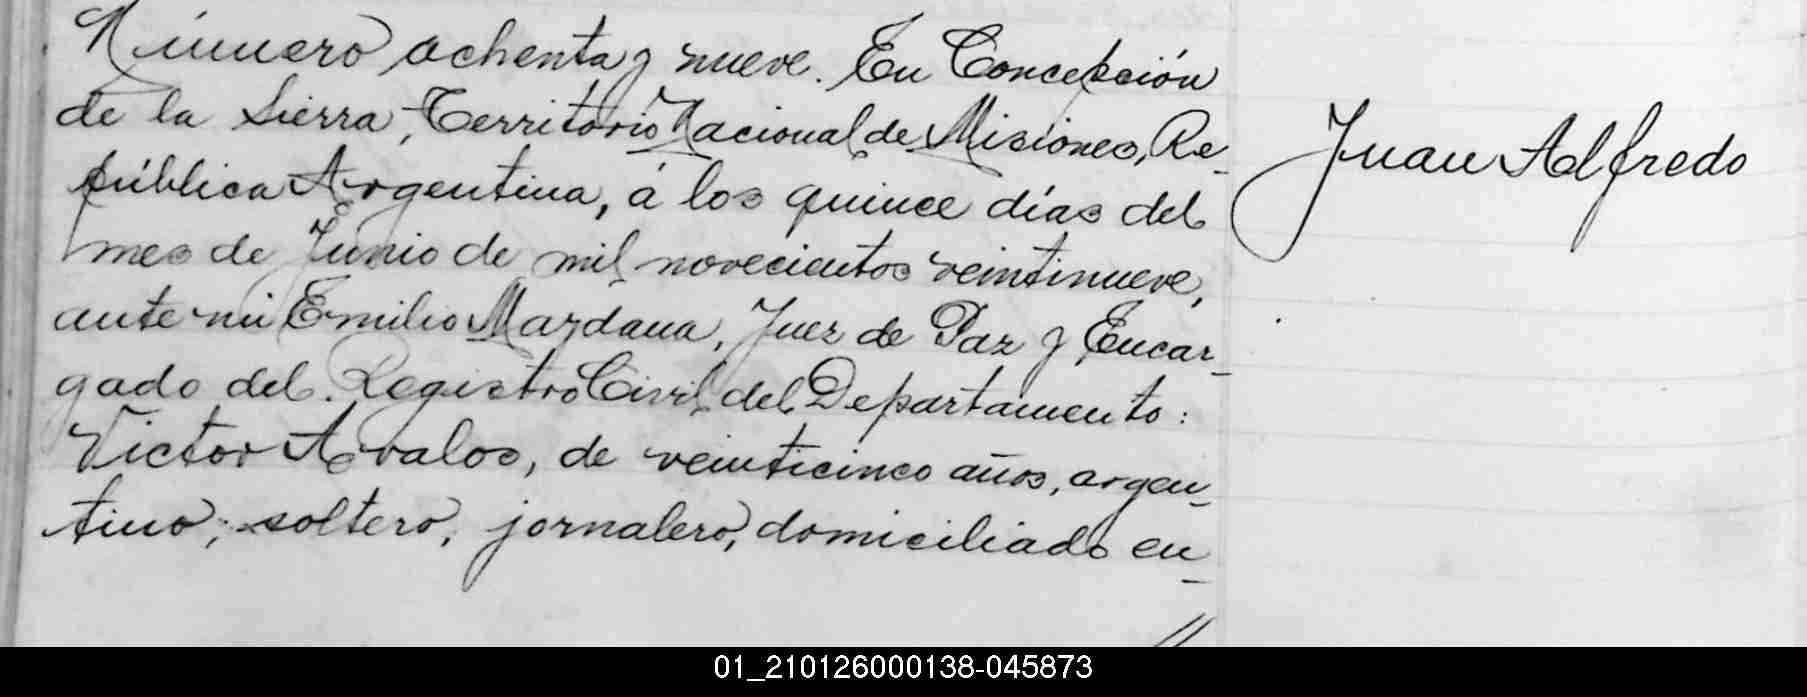 Número ochenta y nueve. En Concepción
de la Sierra, Territorio Nacional de Misiones, Re-
pública Argentina, á los quince días del
mes de Junio de mil novecientos veintinueve,
ante mi Emilio Mardana, Juez de Paz y Encar-
gado del Registro Civil del Departamento:
Victor Avalos, de veinticinco años, argen-
tino, soltero, jornalero, domiciliado en-
//
Juan Alfredo
01_210126000138-045873